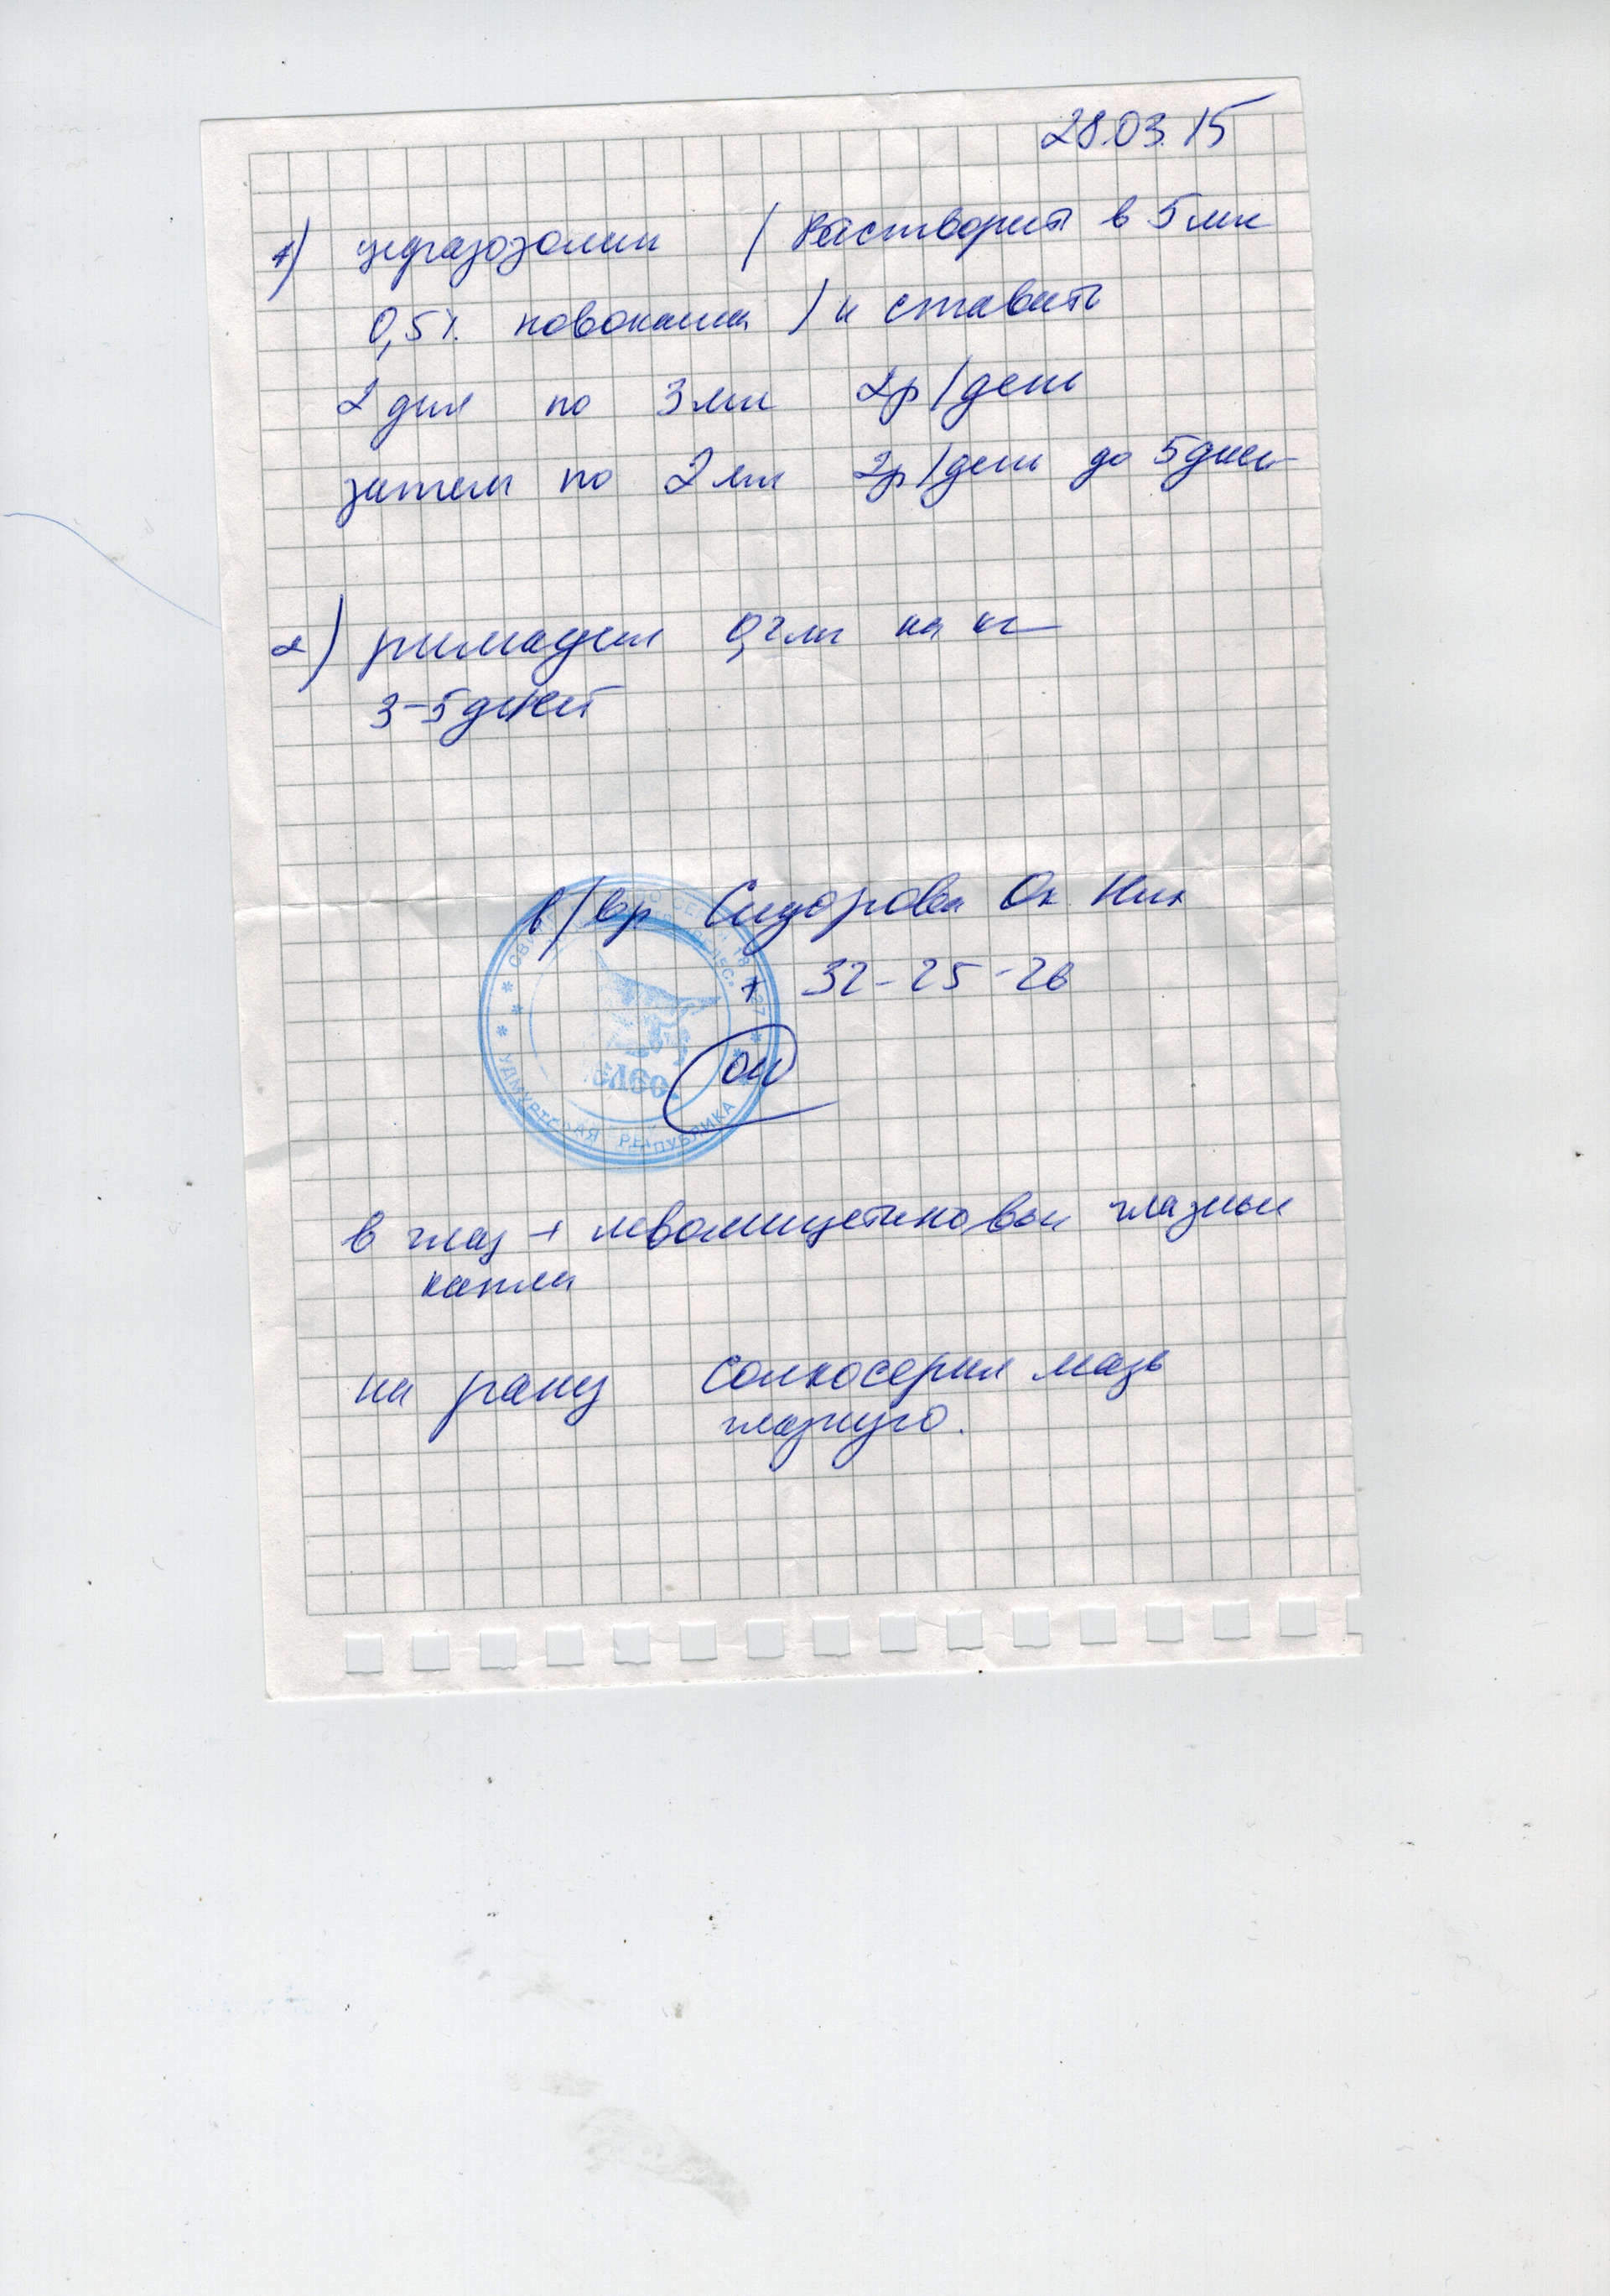 28.03.15
1) цефазолин (Растворить в 5 мл
0,5% новокаина) и ставить
2 дня по 3 мл 2р/день
затем по 2 мл 2р/день до 5 дней
2) римадил 0,2 мл на кг
3-5 дней
в/вр Сидорова Ок Ник
т 32-25-26
УДМУРТСКАЯ РЕСПУБЛИКА
в глаз + левомицетиновые глазные
капли
на рану Солкосерил мазь
глазную.